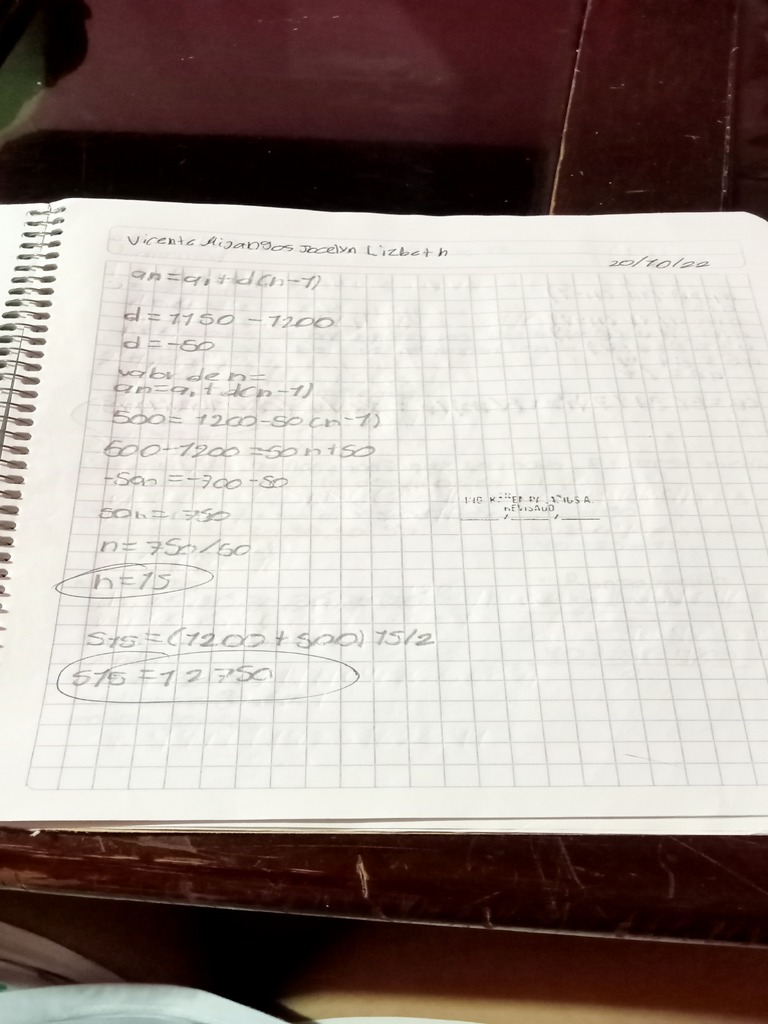 Vicente Mijangos Jocelyn Lizbeth
20/10/22
an=a1+d(n-1)
d=1150-1200
d=-50
valor de n=
an=a1+d(n-1)
500=1200-50(n-1)
500-1200=50n+50
-50n=-700-50
50n=750
n=750/50
n=15
S15=(1200+500)15/2
S15=12750
REVISADO